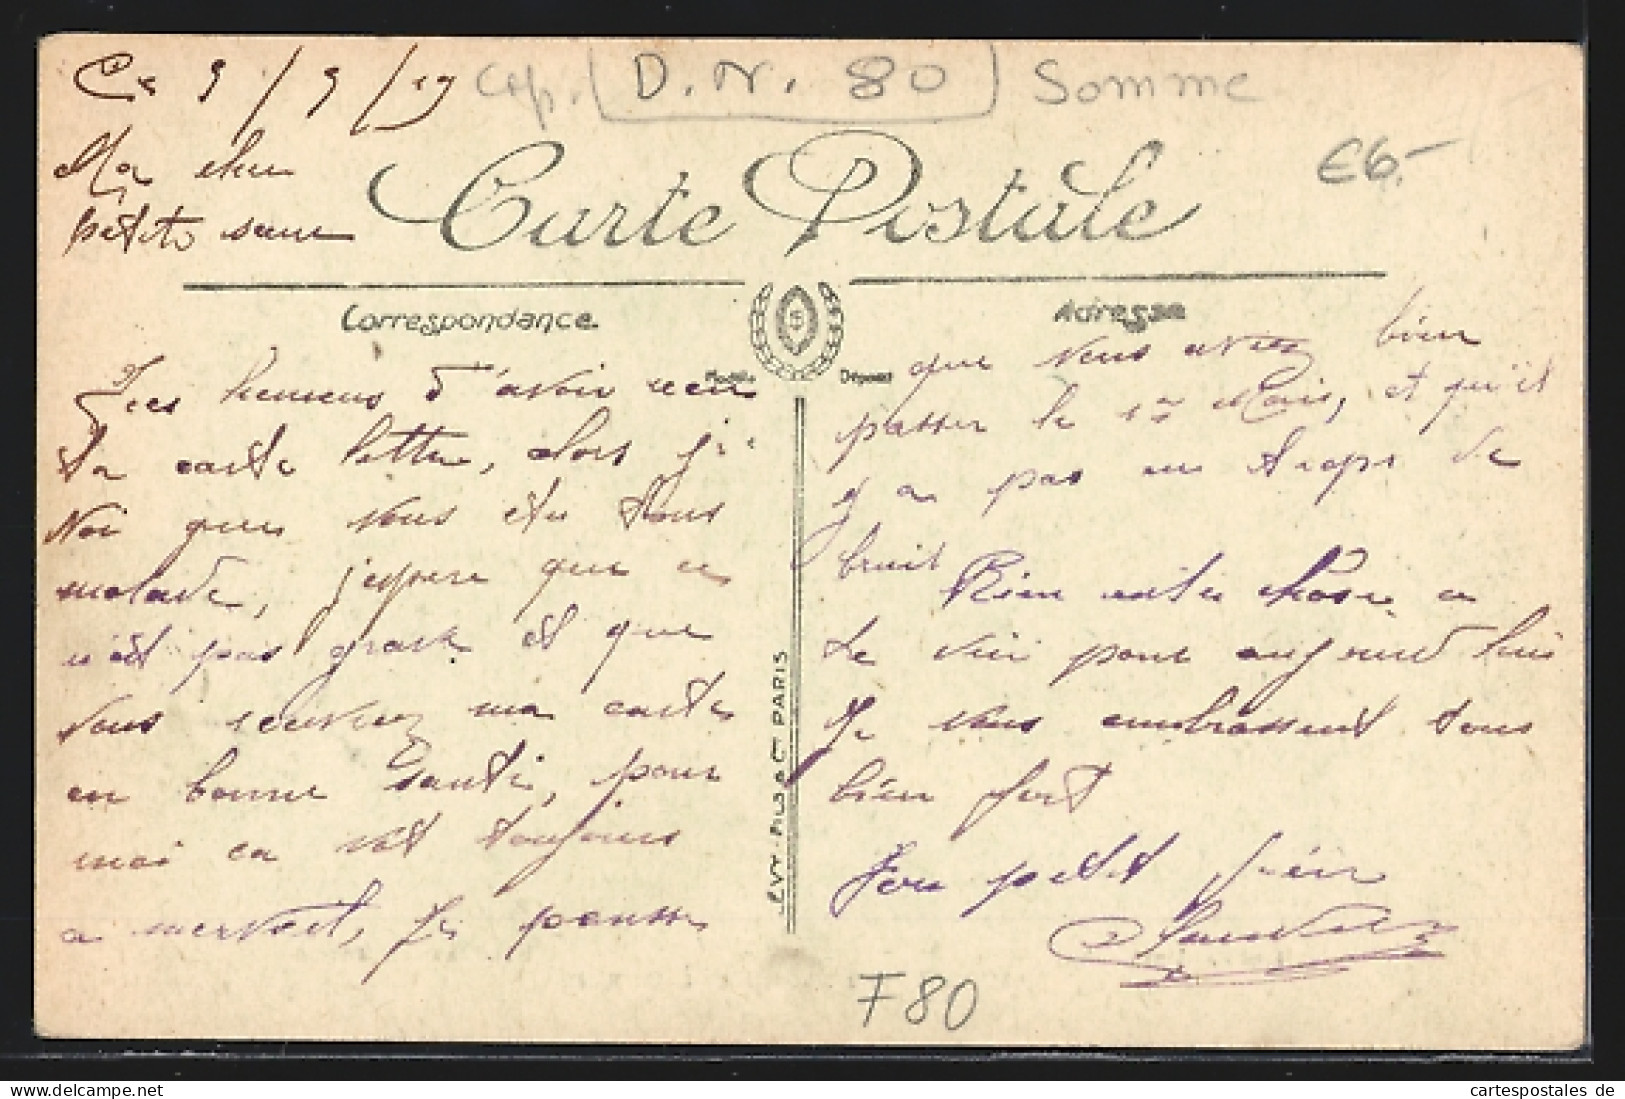 Ce 9/5/19
cap. D.N. 80 Somme
€6.-
Ma cher
petite soeur
Carte Postale
Correspondance
Adresse
Modèle Déposé
heureux d'avoir recu
ta carte lettre, alors je
voi que vous etes tous
malade, j'espere que ce
n'est pas grave et que
vous recevrez ma carte
en bonne santé, pour
moi ca vat toujours
a merveil, je pense
LEVY FILS & Cie PARIS
que vous avez bien
passer le 1er Mais, et qu'il
y a pas eu trops de
bruit
Rien autre chose a
te dire pour aujourd hui
Je vous embrassent tous
bien fort
Ton petit frère
F80
delcampe.net
Kosel
cartespostales de